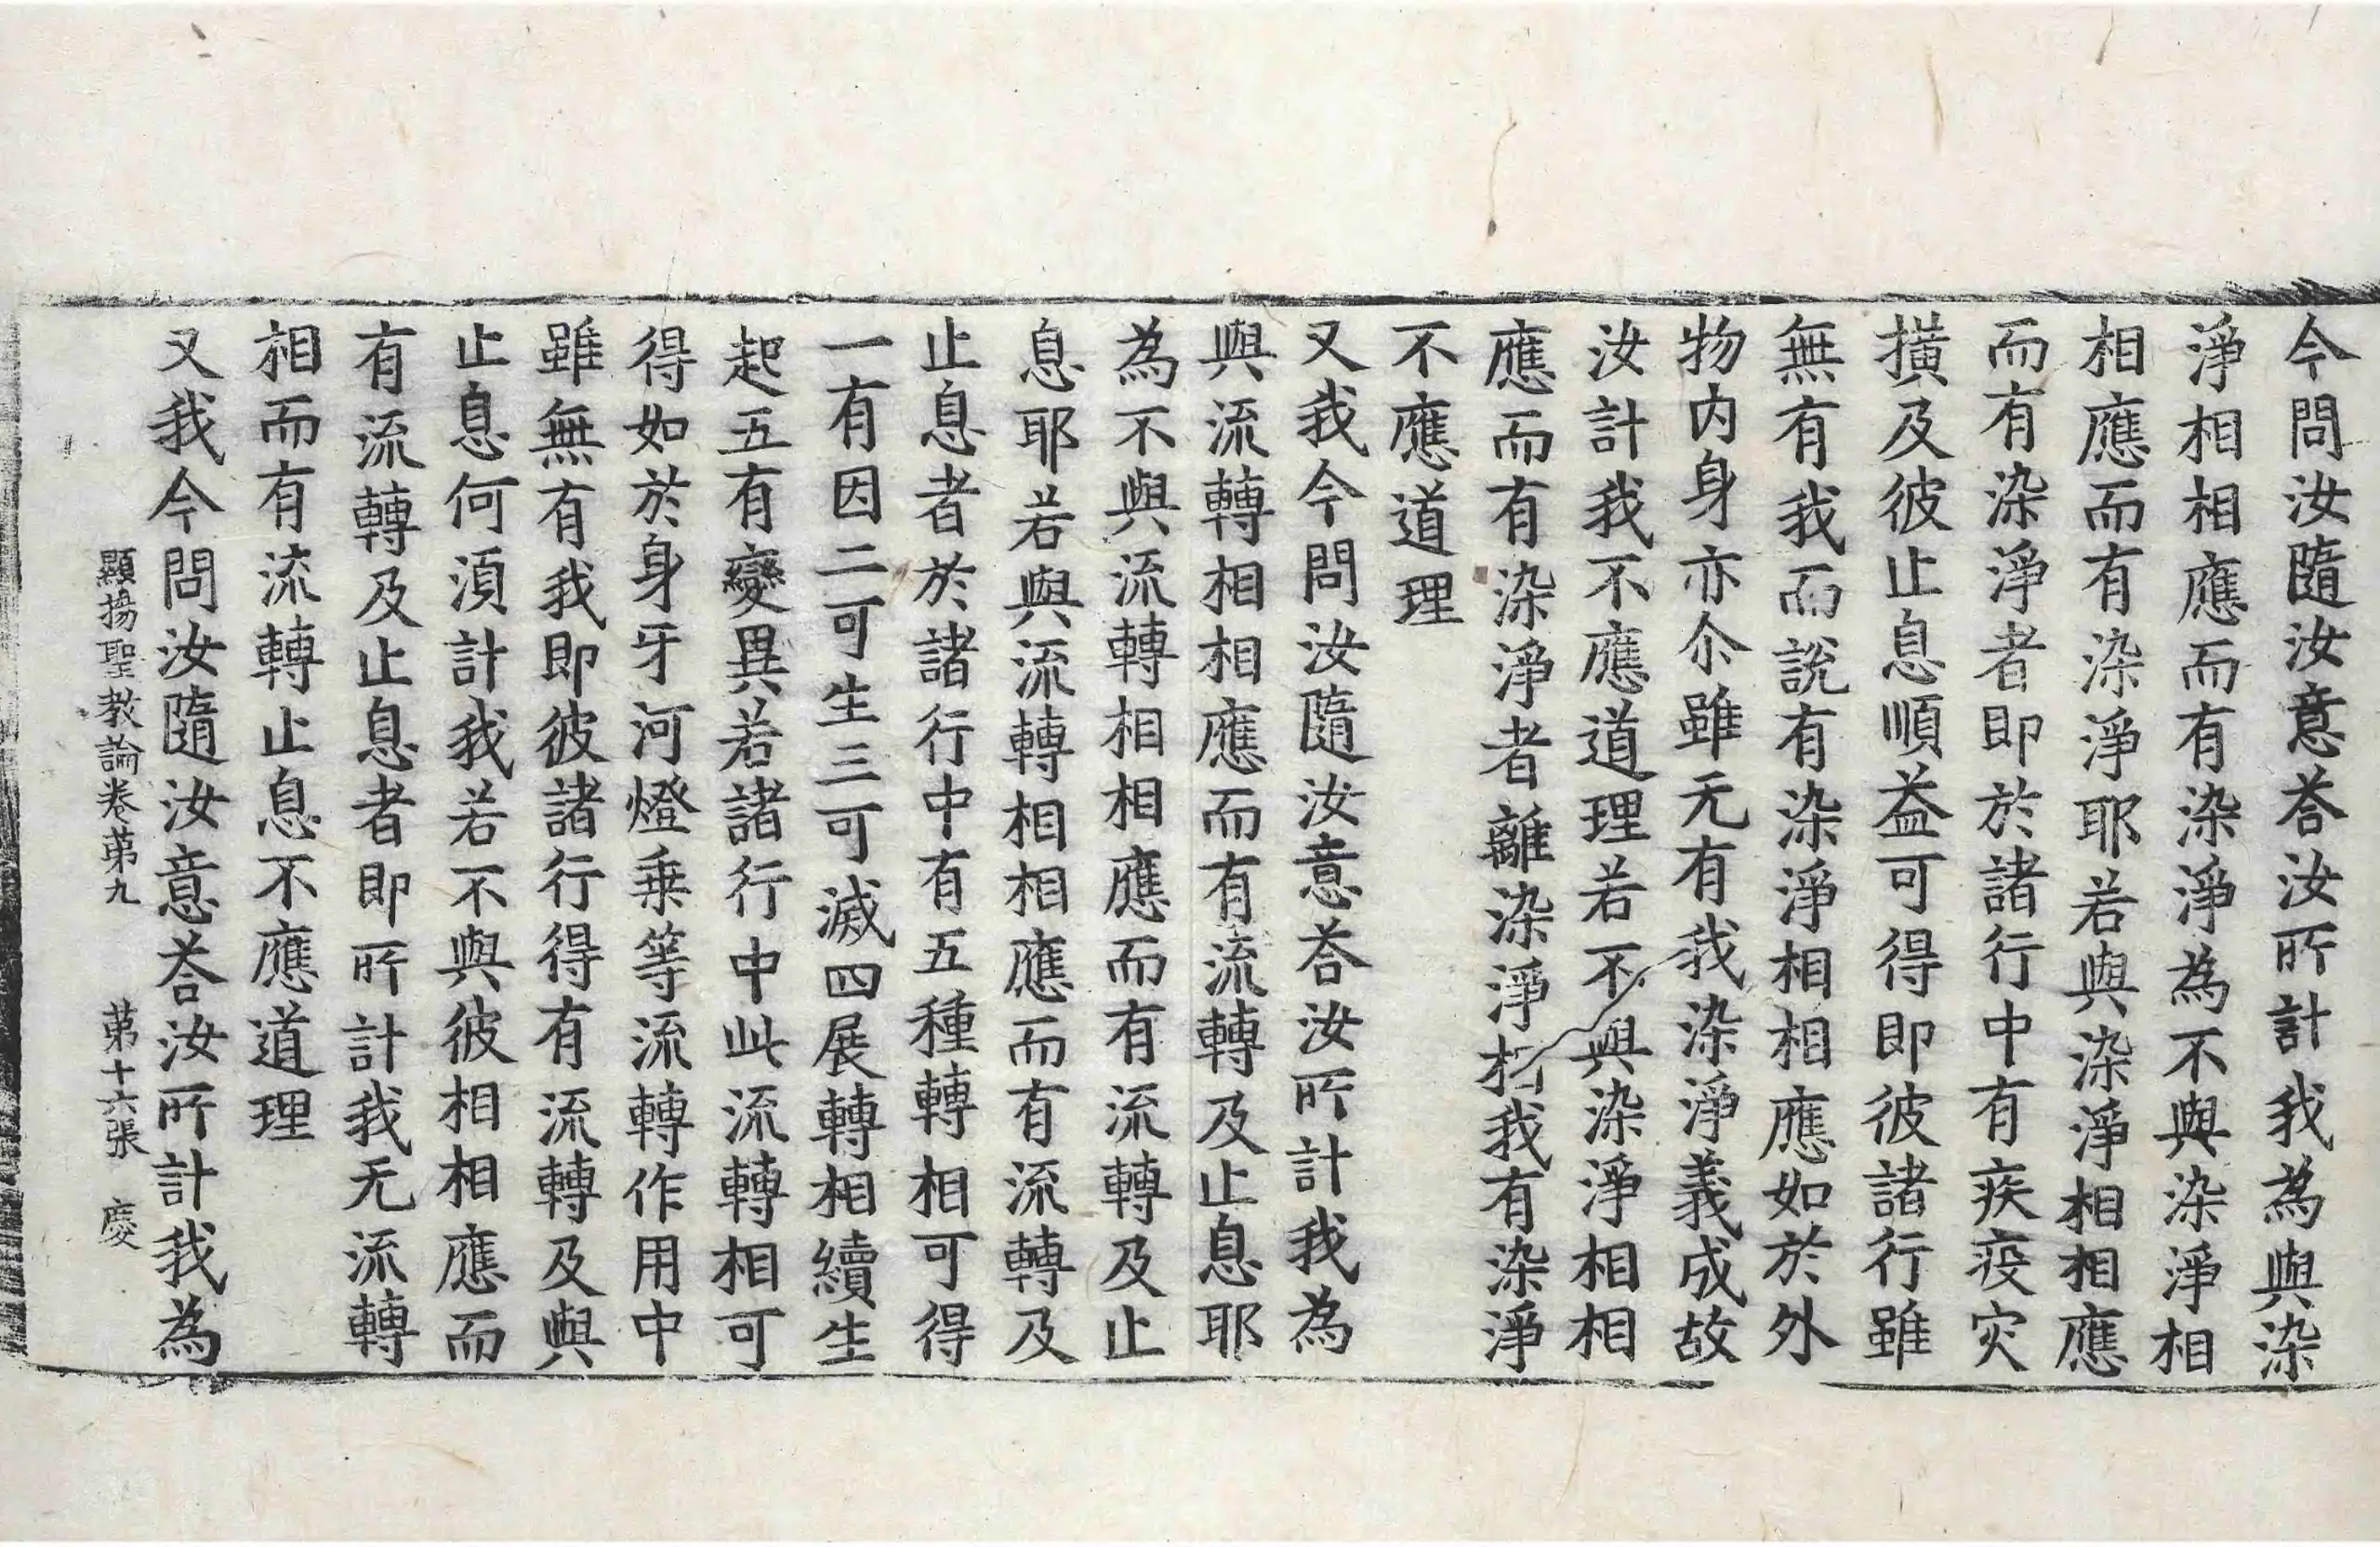 今問汝隨汝意荅汝所計我為與染
淨相相應而有染淨為不與染淨相
相應而有染淨耶若與染淨相相應
而有染淨者即於諸行中有疾疫灾
撗及彼止息順益可得即彼諸行雖
無有我而說有染淨相相應如於外
物内身亦尒雖无有我染淨義成故
汝計我不應道理若不與染淨相相
應而有染淨者離染淨相我有染淨
不應道理
又我今問汝隨汝意荅汝所計我為
與流轉相相應而有流轉及止息耶
為不與流轉相相應而有流轉及止
息耶若與流轉相相應而有流轉及
止息者於諸行中有五種轉相可得
一有因二可生三可滅四展轉相續生
起五有變異若諸行中此流轉相可
得如於身牙河燈乗等流轉作用中
雖無有我即彼諸行得有流轉及與
止息何湏計我若不與彼相相應而
有流轉及止息者即所計我无流轉
相而有流轉止息不應道理
又我今問汝隨汝意荅汝所計我為
顯揚聖教論卷苐九 苐十六張 慶